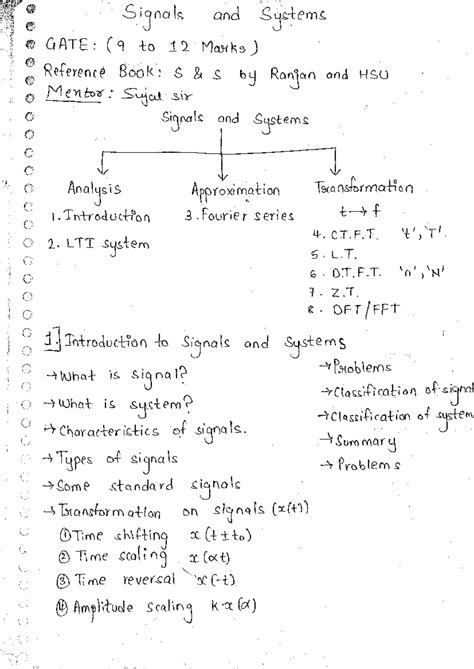 Signals and Systems
GATE: (9 to 12 Marks)
Reference Book: S & S by Ranjan and HSU
Mentor: Sujal sir
Signals and Systems
Analysis
1. Introduction
2. LTI system
Approximation
3. Fourier series
Transformation
t→f
4. C.T.F.T. 't', 'T'.
5. L.T.
6. D.T.F.T. 'n', 'N'
7. Z.T.
8. DFT/FFT
1. Introduction to Signals and Systems
→What is signal?
→What is system?
→Characteristics of signals.
→Types of signals
→Some standard signals
→Transformation on signals (x(t))
① Time shifting x(t±t₀)
② Time scaling x(αt)
③ Time reversal x(-t)
④ Amplitude scaling k·x(α)
→Problems
→Classification of signal
→Classification of system
→Summary
→Problems